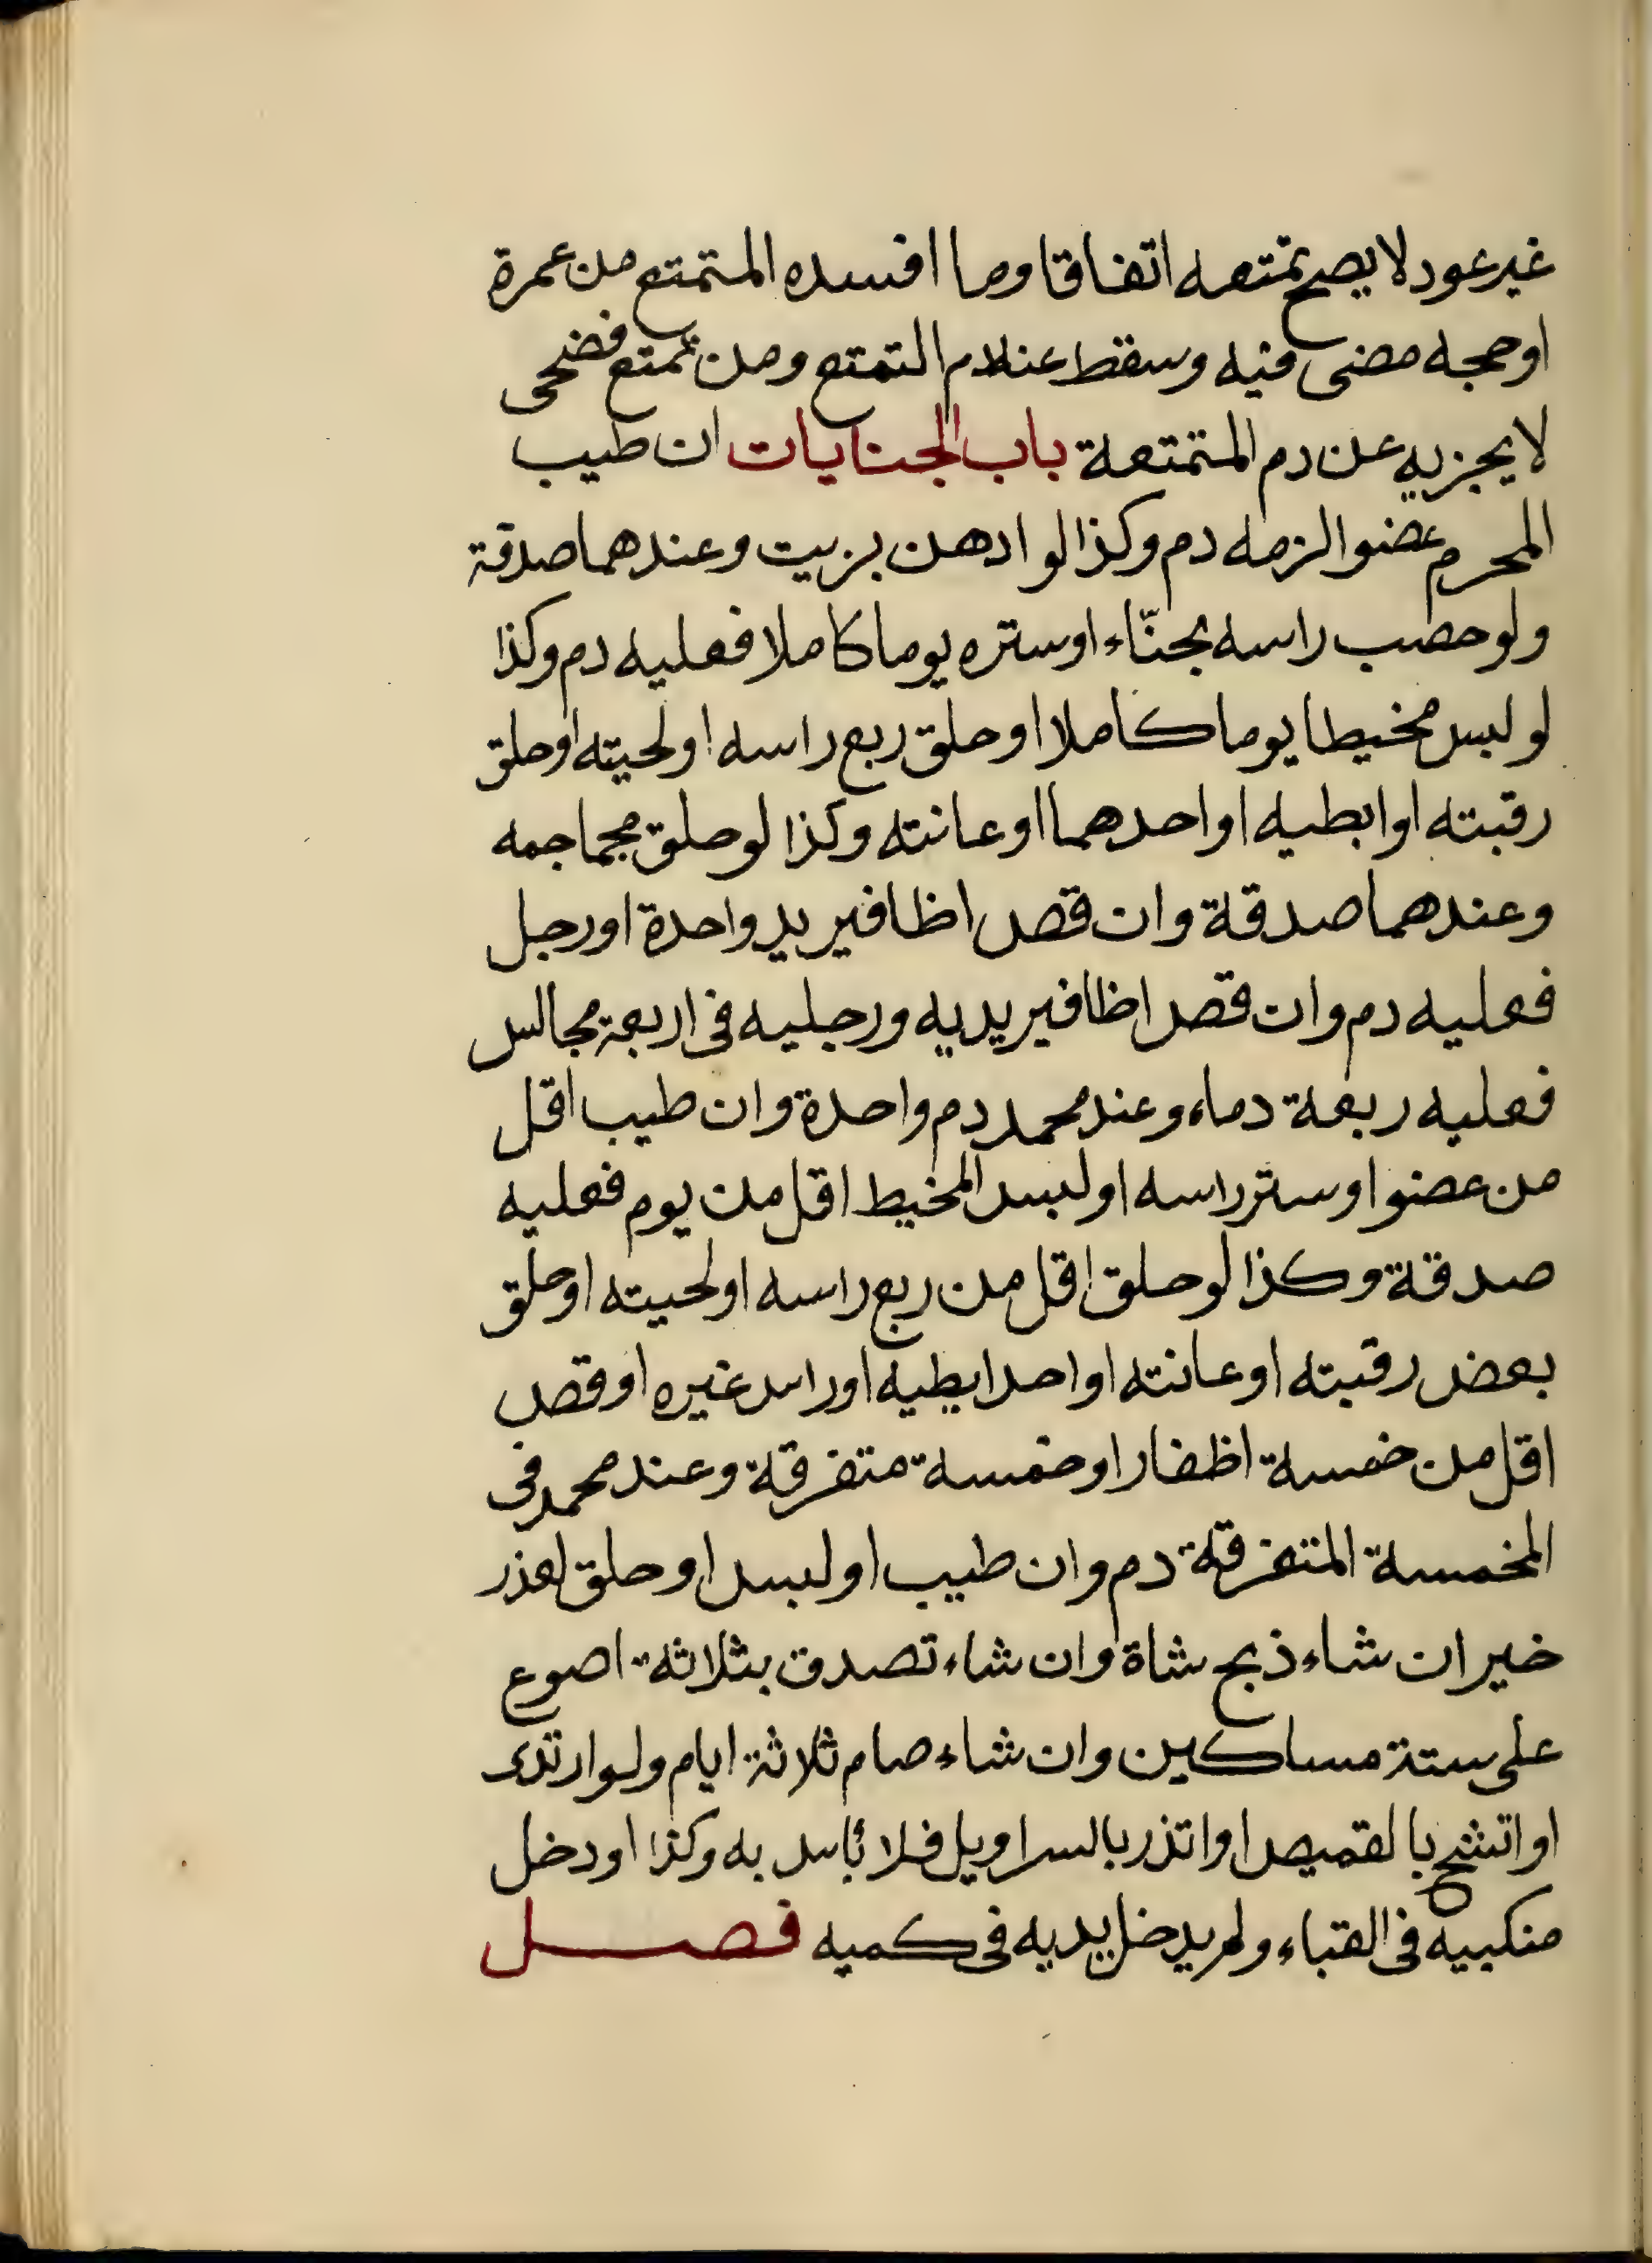 غير عود لا يصح تمتعه اتفاقا وما افسده المتمتع من عمرة
او حجه مضى فيه وسقط عنه دم التمتع ومن تمتع فضحى
لا يجزيه عن دم المتمتعة باب الجنايات ان طيب
المحرم عضوا لزمه دم وكذا لو ادهن بزيت وعندهما صدقة
ولو حصب راسه بحنّاء او ستره يوما كاملا فعليه دم وكذا
لو لبس مخيطا يوما كاملا او حلق ربع راسه او لحيته او حلق
رقبته او ابطيه او احدهما او عانته وكذا لو حلق محجاجمه
وعندهما صدقة وان قص اظافير يد واحدة او رجل
فعليه دم وان قص اظافير يديه ورجليه فى اربعة مجالس
فعليه ربعة دماء وعند محمد دم واحدة وان طيب اقل
من عضو او ستر راسه او لبس المخيط اقل من يوم فعليه
صدقة وكذا لو حلق اقل من ربع راسه او لحيته او حلق
بعض رقبته او عانته او احد ابطيه او راس غيره او قص
اقل من خمسة اظفار او خمسة متفرقة وعند محمد فى
الخمسة المتفرقة دم وان طيب او لبس او حلق لعذر
خير ان شاء ذبح شاة وان شاء تصدق بثلاثة اصوع
على ستة مساكين وان شاء صام ثلاثة ايام ولو ارتدى
او اتشح بالقميص او اتذر بالسراويل فلا بٔاس به وكذا او دخل
منكبيه فى القباء ولم يدخل يديه فى كميه فصل